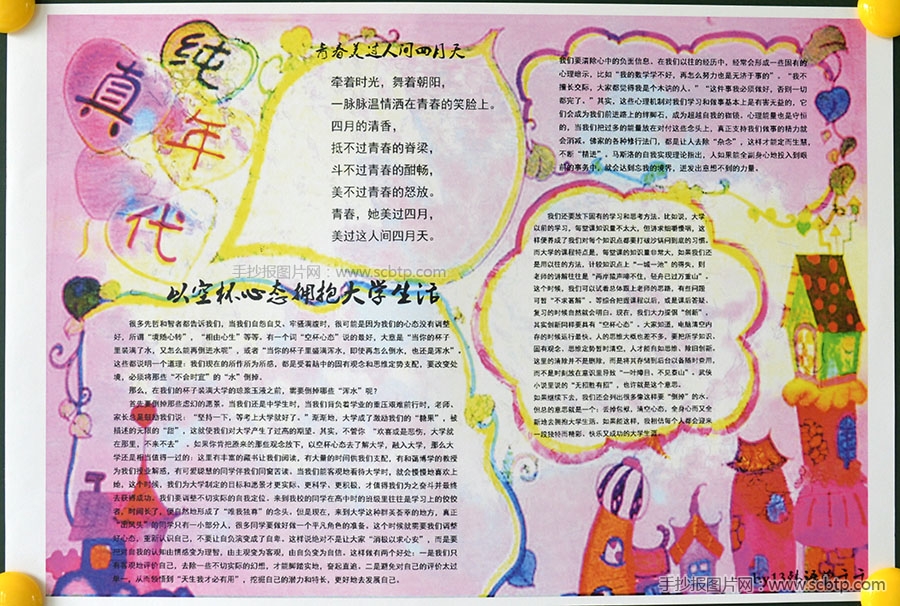 纯真年代
青春美过人间四月天
牵着时光，舞着朝阳，
一脉脉温情洒在青春的笑脸上。
四月的清香，
抵不过青春的脊梁，
斗不过青春的酣畅，
美不过青春的怒放。
青春，她美过四月，
美过这人间四月天。
手抄报图片网：www.scbtp.com
以空杯心态拥抱大学生活
很多先哲和智者都告诉我们，当我们自怨自艾、牢骚满腹时，很可能是因为我们的心态没有调整
好，所谓“境随心转”，“相由心生”等等。有一个词“空杯心态”说的最好，大意是“当你的杯子
里装满了水，又怎么能再倒进水呢”，或者“当你的杯子里盛满浑水，即使再怎么倒水，也还是浑水”。
这些都说明一个道理：我们现在的所作所为所感，都是受着脑中的固有观念和思维定势支配，要改变处
境，必须将那些“不合时宜”的“水”倒掉。
那么，在我们的杯子装满大学的琼浆玉液之前，需要倒掉哪些“浑水”呢？
首先要倒掉那些虚幻的愿景。当我们还是中学生时，当我们背负着学业的重压艰难前行时，老师、
家长总是鼓励我们说：“坚持一下，等考上大学就好了。”渐渐地，大学成了激励我们的“糖果”，被
描述的无限的“甜”，这就使我们对大学产生了过高的期望。其实，不管你“欢喜或是悲伤，大学就
在那里，不来不去”。如果你肯把原来的那些观念放下，以空杯心态去了解大学，融入大学，那么大
学还是相当值得一过的：这里有丰富的藏书让我们阅读，有大量的时间供我们支配，有和蔼博学的教授
为我们授业解惑，有可爱聪慧的同学伴我们同窗苦读。当我们能客观地看待大学时，就会慢慢地喜欢上
她，这个时候，我们为大学制定的目标和愿景才更实际、更科学、更积极，才值得我们为之奋斗并最终
去获得成功。我们要调整不切实际的自我定位。来到我校的同学在高中时的班级里往往是学习上的佼佼
者，时间长了，便自然地形成了“唯我独尊”的念头，但是现在，来到大学这种群英荟萃的地方，真正
“出风头”的同学只有一小部分人，很多同学要做好做一个平凡角色的准备，这个时候就需要我们调整
好心态，重新认识自己，不要让自负演变成了自卑，这样说绝对不是让大家“消极以求心安”，而是要
把对自我的认知由情感变为理智，由主观变为客观，由自负变为自信，这样做有两个好处：一是我们只
有客观地评价自己，去除一些不切实际的幻想，才能脚踏实地，奋起直追。二是避免对自己的评价太过
单一，从而领悟到“天生我才必有用”，挖掘自己的潜力和特长，更好地去发展自己。
我们要清除心中的负面信息，在我们以往的经历中，经常会形成一些固有的
心理暗示，比如“我的数学学不好，再怎么努力也是无济于事的”、“我不
擅长交际，大家都觉得我是个木讷的人。”“这件事我必须做好，否则一切
都完了。”其实，这些心理机制对我们学习和做事基本上是有害无益的，它
们会成为我们前进路上的绊脚石，成为超越自我的枷锁。心理能量也是守恒
的，当我们把过多的能量放在对付这些念头上，真正支持我们做事的精力就
会消减。佛家的各种修行法门，都是让人去除“杂念”，这样才能定而生慧，
不断“精进”。马斯洛的自我实现理论指出，人如果能全副身心地投入到眼
前的事务中，就会达到忘我的境界，迸发出意想不到的力量。
我们还要放下固有的学习和思考方法。比如说，大学
以前的学习，每堂课知识量不太大，但讲求细嚼慢咽，这
样便养成了我们对每个知识点都要打破沙锅问到底的习惯，
而大学的课程特点是，每堂课的知识量非常大，如果我们还
是用以往的方法，计较知识点上“一城一池”的得失，到
老师的讲解往往是“两岸猿声啼不住，轻舟已过万重山”，
这个时候，我们可以试着总体跟上老师的思路，有些问题
可暂“不求甚解”，等综合把握课程以后，或是课后答疑、
复习的时候自然就会明白。现在，我们大力提倡“创新”，
其实创新同样要具有“空杯心态”。大家知道，电脑清空内
存的时候运行最快，人的思维大概也差不多，要把所学知识、
固有观念、思维定势暂时清空，人才能自如思维、推旧创新。
这里的清除并不是删除，而是将其存储到后台以备随时查用，
而不是时刻放在意识里导致“一叶障目，不见泰山”。武侠
小说里说的“无招胜有招”，也许就是这个意思。
如果继续下去，我们还会列出很多像这样要“倒掉”的水，
但总的意思就是一个：去掉包袱，清空心态，全身心而又全
新地去拥抱大学生活。如果能这样，我相信每个人都会迎来
一段独特而精彩、快乐又成功的大学生涯。
手抄报图片网：www.scbtp.com